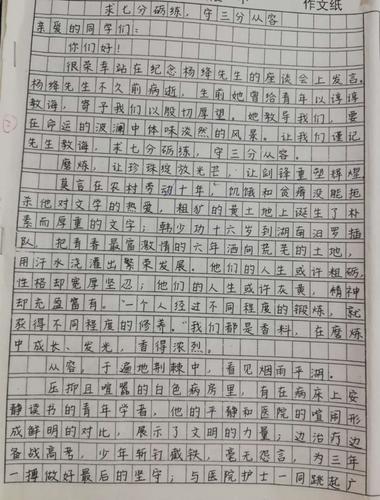 作文纸
求七分砺练，守三分从容
亲爱的同学们：
你们好！
很荣幸站在纪念杨绛先生的座谈会上发言。
杨绛先生不久前病逝，生前她曾给青年以谆谆
教诲，寄予我们以殷切厚望。她教导我们，要
在命运的波澜中体味淡然的风景。让我们谨记
先生教诲，求七分砺练，守三分从容。
磨炼，让珍珠绽放光芒，让剑锋重塑辉煌
莫言在农村劳动十年，饥饿和贫瘠没能扼
杀他对文学的热爱，粗犷的黄土地上诞生了朴
素而厚重的文字；韩少功十六岁到湖南汨罗插
队，把青春最富激情的六年洒向荒芜的土地，
用汗水浇灌出繁荣发展。他们的人生或许粗砺，
性格却宽厚坚忍；他们的人生或许灰黄，精神
却充盈富有。“一个人经过不同程度的锻炼，就
获得不同程度的修养。”我们都是香料，在磨炼
中成长、发光，香得浓烈。
从容，于遍地荆棘中，看见烟雨平湖。
压抑且喧嚣的白色病房里，有在病床上安
静读书的青年学者，他的平静和医院的喧闹形
成鲜明的对比，展示了文明的力量；边治疗边
备战高考，少年斩钉截铁，毫无怨言，为三年
一搏做好最后的坚守；与医院护士一同跳起广